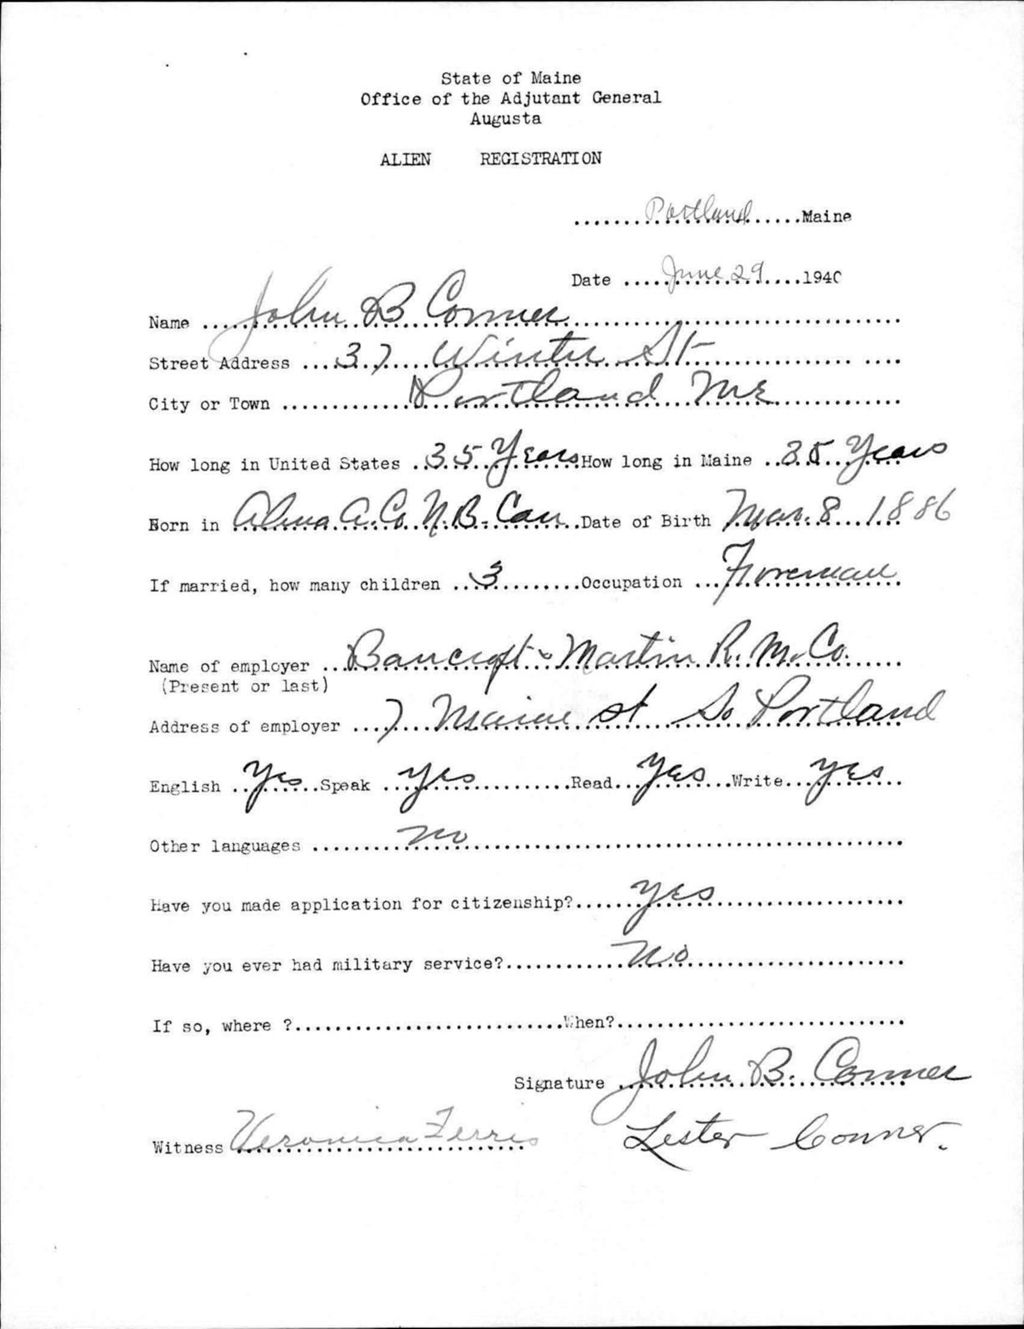 State of Maine
Office of the Adjutant General
Augusta
ALIEN REGISTRATION
.......Portland......Maine
Date .....June 29....1940
Name ....John B Conner.................................
Street Address ...37 Winter St.................. ....
City or Town .............Portland Me..............
How long in United States ..35 Years How long in Maine ..35 Years
Born in Alma A. Co N.B. Can..Date of Birth Mar. 8 1886
If married, how many children ..3........Occupation ...Foreman
Name of employer ..Bancroft - Martin R. M. Co......
(Present or last)
Address of employer ...7 Maine st So Portland
English ..Yes..Speak ..yes..........Read..Yes..Write...yes..
Other languages ........no..........................................
Have you made application for citizenship?......yes...................
Have you ever had military service?...........No.....................
If so, where ?..........................When?............................
Signature .John B. Conner
Witness Veronica Ferris
Lester Conner.